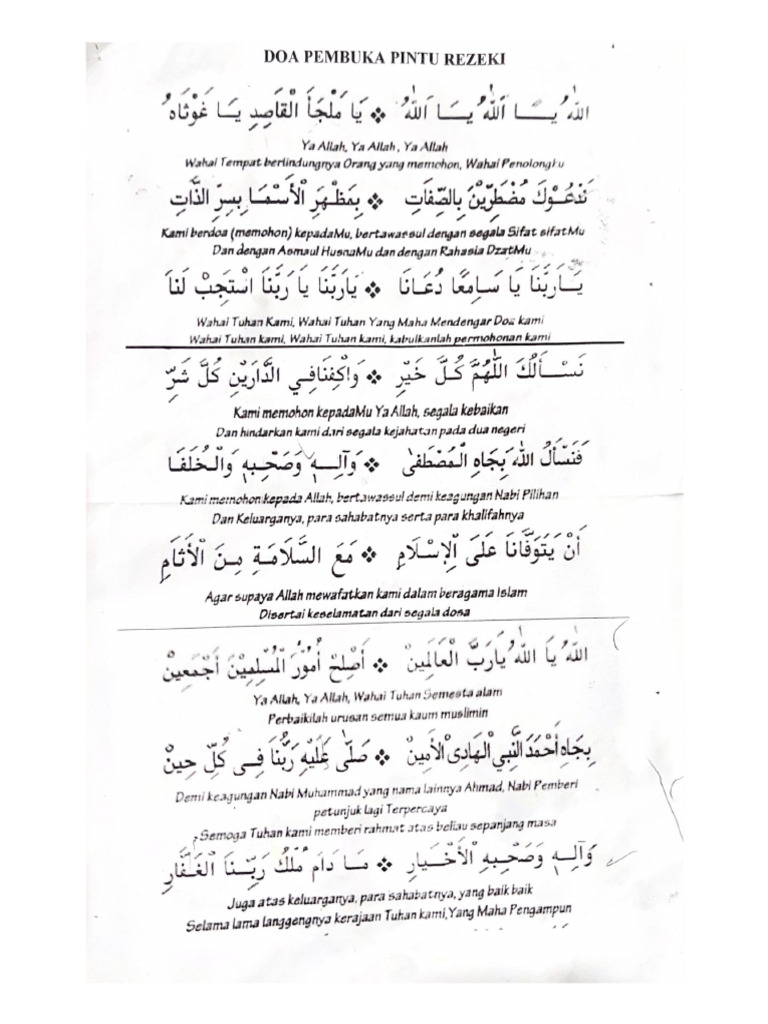 DOA PEMBUKA PINTU REZEKI
اَللهُ يَـــا اَللهُ يَـــا اَللهُ ❖ يَا مَلْجَأَ الْقَاصِدِ يَــا غَوْثَاهُ
Ya Allah, Ya Allah , Ya Allah
Wahai Tempat berlindungnya Orang yang memohon, Wahai Penolongku
نَدْعُوْكَ مُضْطَرِّيْنَ بِالصِّفَاتِ ❖ بِمَظْهَرِ الْأَسْمَا بِسِرِّ الذَّاتِ
Kami berdoa (memohon) kepadaMu, bertawassul dengan segala Sifat sifatMu
Dan dengan Asmaul HusnaMu dan dengan Rahasia DzatMu
يَــارَبَّنَا يَا سَـامِعًا دُعَـانَا ❖ يَارَبَّنَا يَا رَبَّنَا اسْتَجِبْ لَنَا
Wahai Tuhan Kami, Wahai Tuhan Yang Maha Mendengar Doa kami
Wahai Tuhan kami, Wahai Tuhan kami, kabulkanlah permohonan kami
نَسْــأَلُكَ اللّٰهُمَّ كُــلَّ خَـيْرِ ❖ وَاكْفِنَافِي الدَّارَيْنِ كُلَّ شَرِّ
Kami memohon kepadaMu Ya Allah, segala kebaikan
Dan hindarkan kami dari segala kejahatan pada dua negeri
فَنَسْأَلُ اللهَ بِجَاهِ الْمُصْطَفَى ❖ وَآلِــهِ وَصَحْبِهِ وَالْـخُلَفَـا
Kami memohon kepada Allah, bertawassul demi keagungan Nabi Pilihan
Dan Keluarganya, para sahabatnya serta para khalifahnya
أَنْ يَتَوَفَّانَا عَلَى الْإِسْـلَامِ ❖ مَعَ السَّلَامَـةِ مِـنَ الْأَثَامِ
Agar supaya Allah mewafatkan kami dalam beragama Islam
Disertai keselamatan dari segala dosa
اَللهُ يَا اَللهُ يَارَبَّ الْعَالَمِيْنَ ❖ أَصْلِحْ أُمُوْرَ الْمُسْلِمِيْنَ أَجْمَعِيْنَ
Ya Allah, Ya Allah, Wahai Tuhan Semesta alam
Perbaikilah urusan semua kaum muslimin
بِجَاهِ أَحْمَدَ النَّبِي الْهَادِى الْأَمِيْنْ ❖ صَلَّى عَلَيْهِ رَبُّنَا فِـى كُلِّ حِيْنْ
Demi keagungan Nabi Muhammad yang nama lainnya Ahmad, Nabi Pemberi
petunjuk lagi Terpercaya
Semoga Tuhan kami memberi rahmat atas beliau sepanjang masa
وَآلِـهِ وَصَحْبِهِ الْأَخْـيَارِ ❖ مَـا دَامَ مُلْكُ رَبِّـنَا الْغَـفَّارِ
Juga atas keluarganya, para sahabatnya, yang baik baik
Selama lama langgengnya kerajaan Tuhan kami,Yang Maha Pengampun